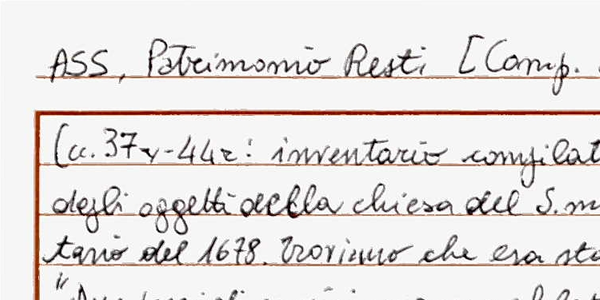 ASS, Patrimonio Resti [Comp.
[cc. 37v-44r: inventario compilat
degli oggetti della chiesa del S. m
tario del 1678. Troviamo che era sta